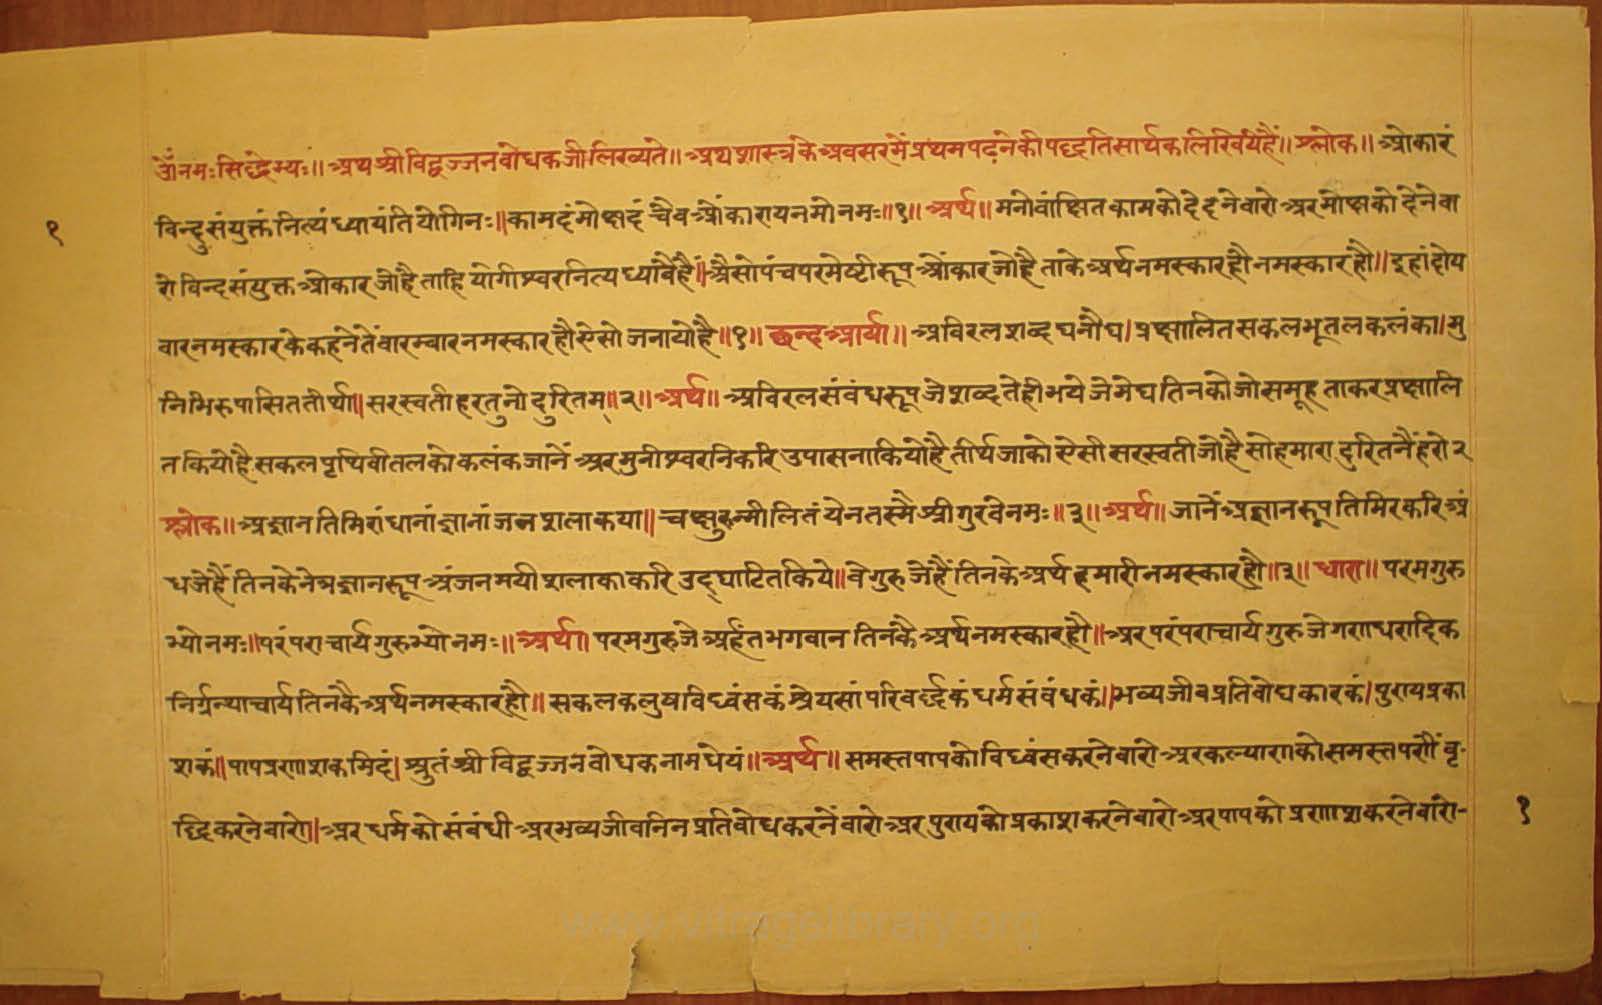 ॐनमःसिद्धेभ्यः॥ अथश्रीविद्वज्जनबोधकजीलिख्यते॥ अथशास्त्रंकेअवसरमेंप्रथमपढ़नेकीपद्धतिसार्थकलिखियेहैं॥ श्लोक॥ ओंकारं
१ विन्दुसंयुक्तंनित्यंध्यायंतियोगिनः॥कामदंमोक्षदंचैवओंकारायनमोनमः॥१॥ अर्थ॥ मनोवांक्षितकामकोदेहनेवारोअरमोक्षकोदेनेवा
रोविन्दसंयुक्तओंकारजोहैताहियोगीश्वरनित्यध्यावैहैं॥अैसोपंचपरमेष्टीरूपओंकारजोहैताकेअर्थनमस्कारहौनमस्कारहौ॥इहांदोय
वारनमस्कारकेकहनेतेंवारम्वारनमस्कारहौऐसोजनायोहै॥१॥ छन्दआर्या॥ अविरलशब्दघनौघ।प्रक्षालितसकलभूतलकलंका।मु
निभिरुपासिततीर्था॥सरस्वतीहरतुनोदुरितम्॥२॥ अर्थ॥ अविरलसंवंधरूपजेशब्दतेहीभयेजेमेघतिनकोजोसमूहताकरप्रक्षालि
तकियोहैसकलपृथिवीतलकोकलंकजानें अरमुनीश्वरनिकरिउपासनाकियोहैतीर्थजाकोऐसीसरस्वतीजोहैसोहमारादुरितनैंहरो२
श्लोक॥ अज्ञानतिमिरांधानांज्ञानांजनशलाकया॥चक्षुरुन्मीलितंयेनतस्मैश्रीगुरवेनमः॥३॥ अर्थ॥ जानेंअज्ञानरूपतिमिरकरिअं
धजेहैंतिनकेनेत्रज्ञानरूपअंजनमयीशलाकाकरिउद्घाटितकिये॥वेगुरुजेहैंतिनकेअर्थहमारीनमस्कारहौ॥३॥ धारा॥ परमगुरु
भ्योनमः॥परंपराचार्यगुरुभ्योनमः॥ अर्थ॥ परमगुरुजेअर्हंतभगवानतिनकैअर्थनमस्कारहौ॥अरपरंपराचार्यगुरुजेगणधरादिक
निर्ग्रन्थाचार्यतिनकैअर्थनमस्कारहौ॥सकलकलुषविध्वंसकंश्रेयसांपरिवर्द्धकंधर्मसंवंधकं॥भव्यजीवप्रतिवोधकारकं।पुण्यप्रका
शकं॥पापप्रणाशकमिदं।श्रुतंश्रीविद्वज्जनवोधकनामधेयं॥अर्थ॥ समस्तपापकोविध्वंसकरनेवारोअरकल्याणकोसमस्तपणैंवृ-
द्धिकरनेवारो॥अरधर्मकोसंबंधीअरभव्यजीवनिनप्रतिवोधकरनेंवारोअरपुण्यकोप्रकाशकरनेवारोअरपापकोप्रणाशकरनेवारो- १
www.vitragelibrary.org